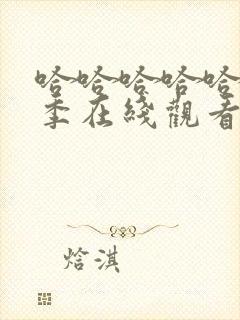 哈哈哈哈哈
季在綫觀看
焓淇